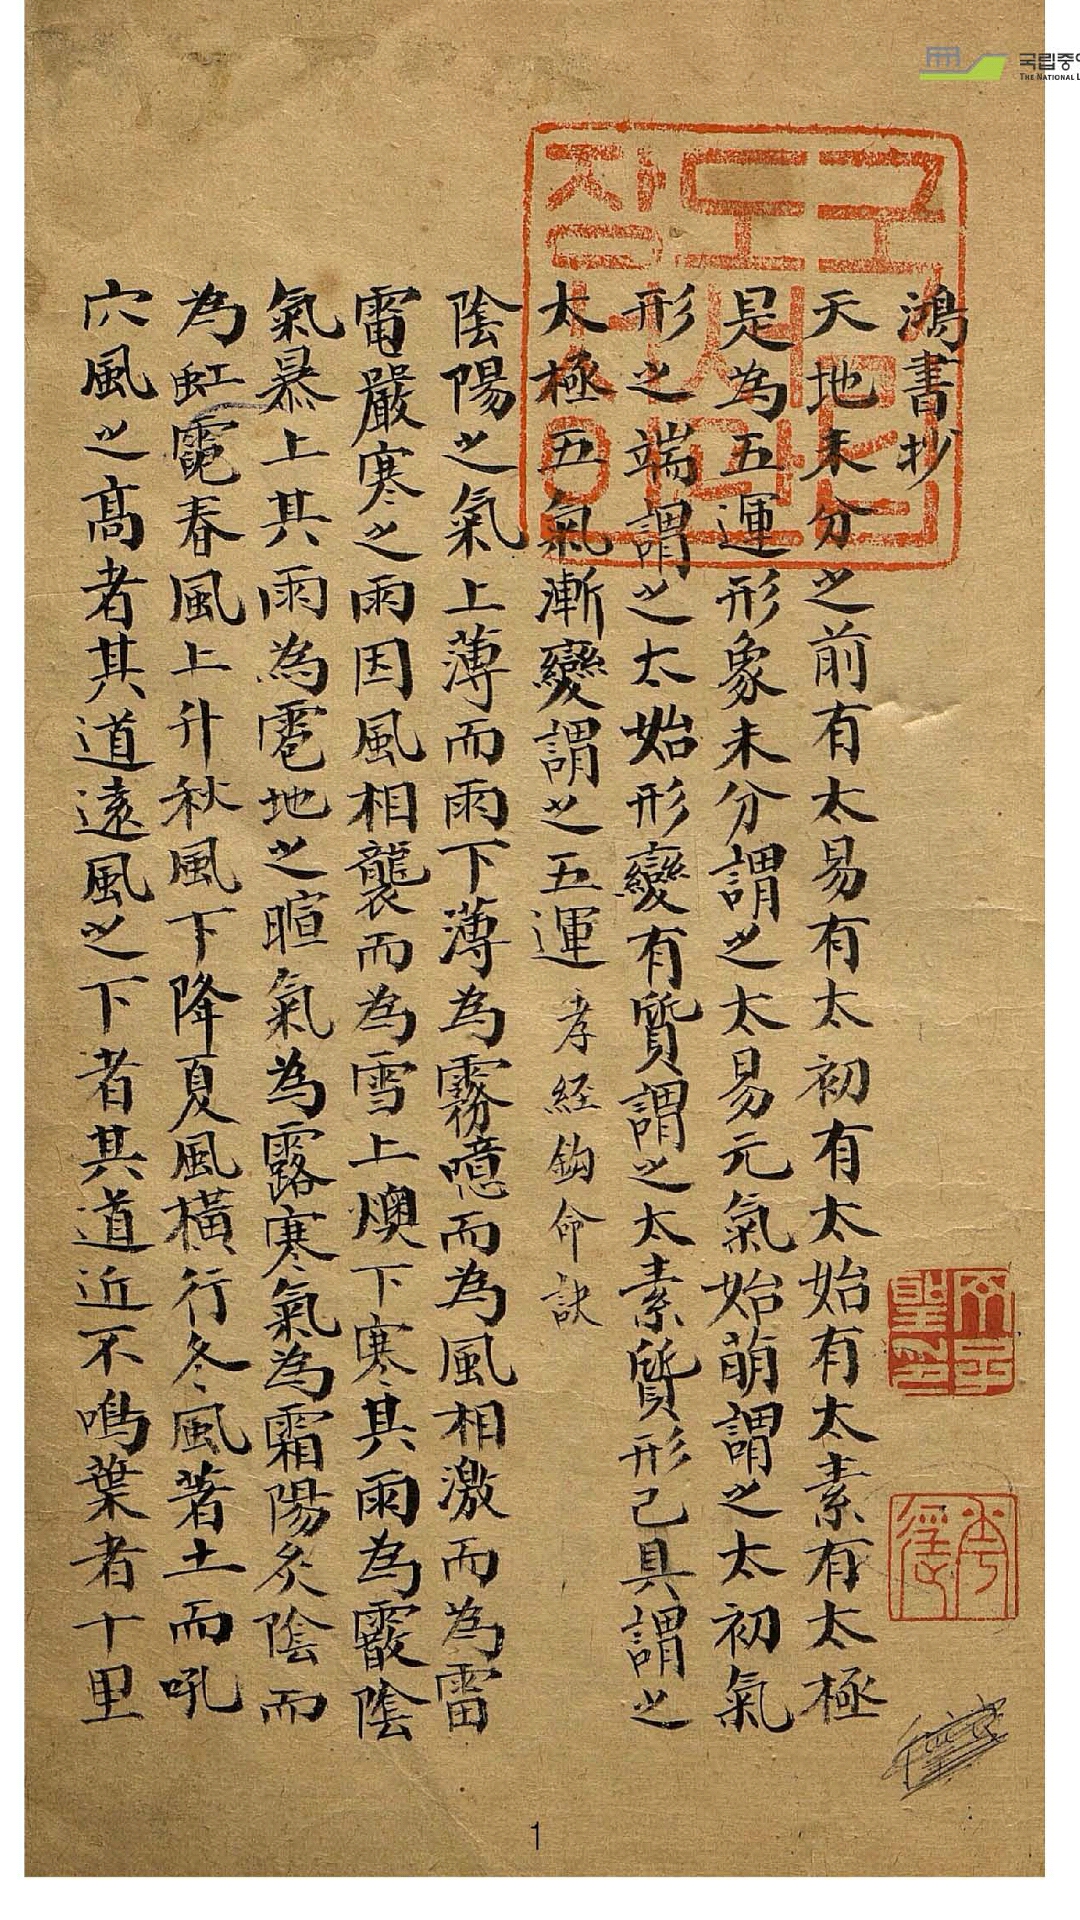 鴻書抄
天地未分之前有太易有太初有太始有太素有太極
是為五運形象未分謂之太易元氣始萌謂之太初氣
形之端謂之太始形變有質謂之太素質形已具謂之
太極五氣漸變謂之五運孝經鉤命訣
陰陽之氣上薄而雨下薄為霧噫而為風相激而為雷
電嚴寒之雨因風相襲而為雪上燠下寒其雨為霰陰
氣暴上其雨為雹地之暄氣為露寒氣為霜陽炙陰而
為虹霓春風上升秋風下降夏風橫行冬風著土而吼
穴風之高者其道遠風之下者其道近不鳴葉者十里
국립중
THE NATIONAL L
1